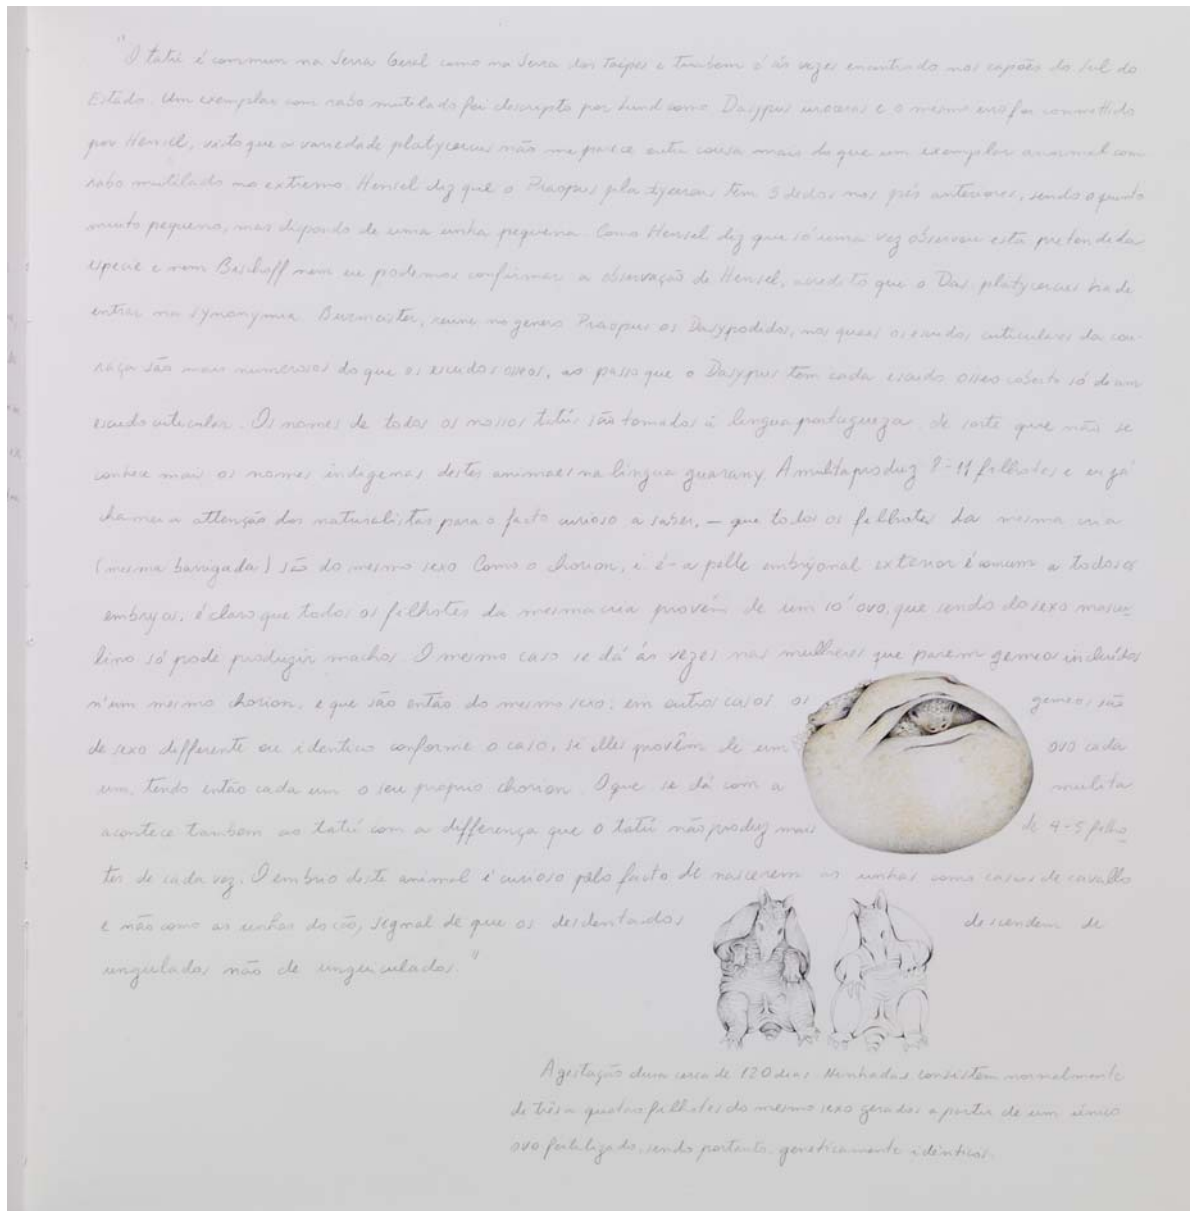 "O tatú é commum na Serra Geral como na Serra dos Taipes e tambem é ás vezes encontrado nos capões do sul do
Estado. Um exemplar com rabo mutilado foi descripto por Lund como Dasypus uroceras e o mesmo erro foi commettido
por Hensel, visto que a variedade platycercus não me parece outra cousa mais do que um exemplar anormal com
rabo mutilado no extremo. Hensel diz que o Praopus platycercus tem 5 dedos nos pés anteriores, sendo o quinto
muito pequeno, mas dispondo de uma unha pequena. Como Hensel diz que só uma vez observou esta pretendida
especie e nem Bischoff nem eu podemos confirmar a observação de Hensel, acredito que o Das. platycercus ha de
entrar na synonymia. Burmeister, reune no genero Praopus os Dasypodidos, nos quaes os escudos cuticulares da cou-
raça são mais numerosos do que os escudos osseos, ao passo que o Dasypus tem cada escudo osseo coberto só de um
escudo cuticular. Os nomes de todos os nossos tatús são tomados á lingua portugueza, de sorte que não se
conhece mais os nomes indigenas destes animaes na lingua guarany. A mulita produz 8-11 filhotes e eu já
chamei a attenção dos naturalistas para o facto curioso a saber, – que todos os filhotes da mesma cria
(mesma barrigada) são do mesmo sexo. Como o chorion, i é - a pelle embryonal exterior é comum a todos os
embryos, é claro que todos os filhotes da mesma cria provém de um só ovo, que sendo do sexo mascu-
lino só pode produzir machos. O mesmo caso se dá ás vezes nas mulheres que parem gemeos incluidos
n'um mesmo chorion, e que são então do mesmo sexo; em outros casos os gemeos são
de sexo differente ou identico conforme o caso, si elles provêm de um ovo cada
um, tendo então cada um o seu proprio chorion. O que se dá com a mulita
acontece tambem ao tatú com a differença que o tatú não produz mais de 4-5 filho
tes de cada vez. O embrio deste animal é curioso pelo facto de nascerem as unhas como cascos de cavallo
e não como as unhas do cão, signal de que os desdentados descendem de
ungulados não de unguiculados."
A gestação dura cerca de 120 dias. Ninhadas consistem normalmente
de três a quatro filhotes do mesmo sexo gerados a partir de um único
ovo fertilizado, sendo portanto, geneticamente idênticos.